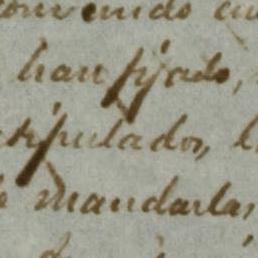 convenido en
han fijado,
stipulados,
mandarlas